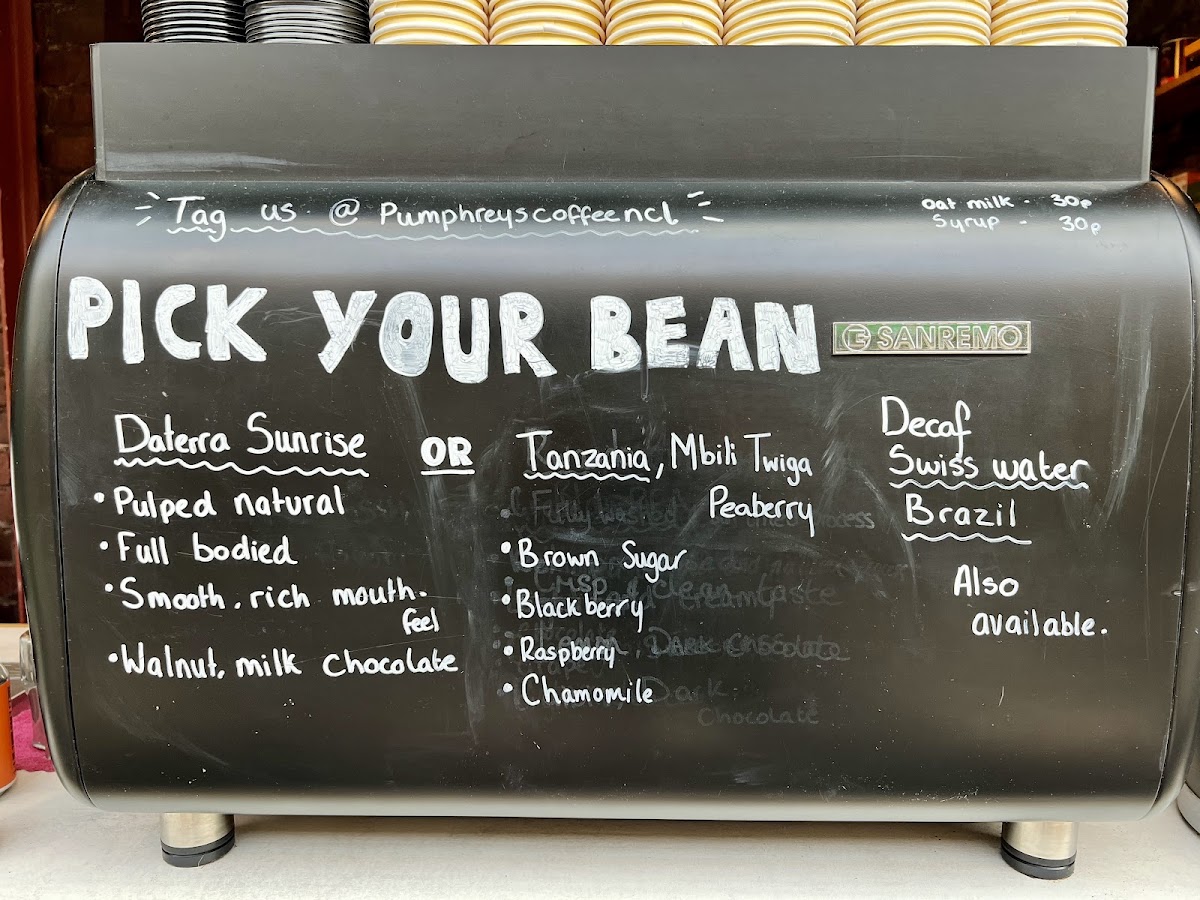 Tag us @ Pumphreyscoffeencl
Oat milk - 30p
Syrup - 30p
PICK YOUR BEAN
SANREMO
Daterra Sunrise
• Pulped natural
• Full bodied
• Smooth, rich mouth-
feel
• Walnut, milk chocolate
OR
Tanzania, Mbili Twiga
Peaberry
• Brown Sugar
• Blackberry
• Raspberry
• Chamomile
Decaf
Swiss water
Brazil
Also
available.